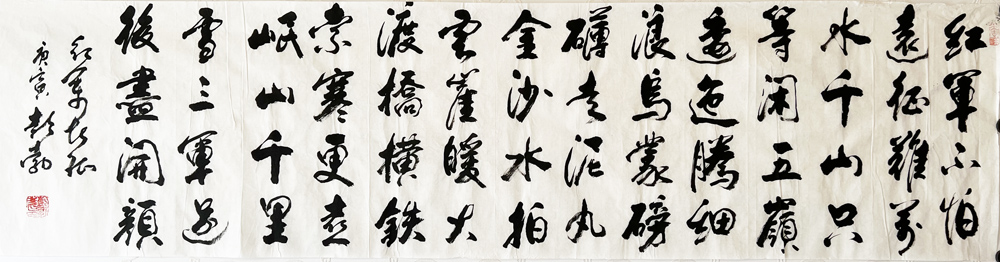 紅軍不怕
遠征難萬
水千山只
等閑五嶺
逶迤騰細
浪烏蒙磅
礴走泥丸
金沙水拍
雲崖暖大
渡橋橫鐵
索寒更喜
岷山千里
雪三軍過
後盡開顏
紅軍長征
庚寅彭勃